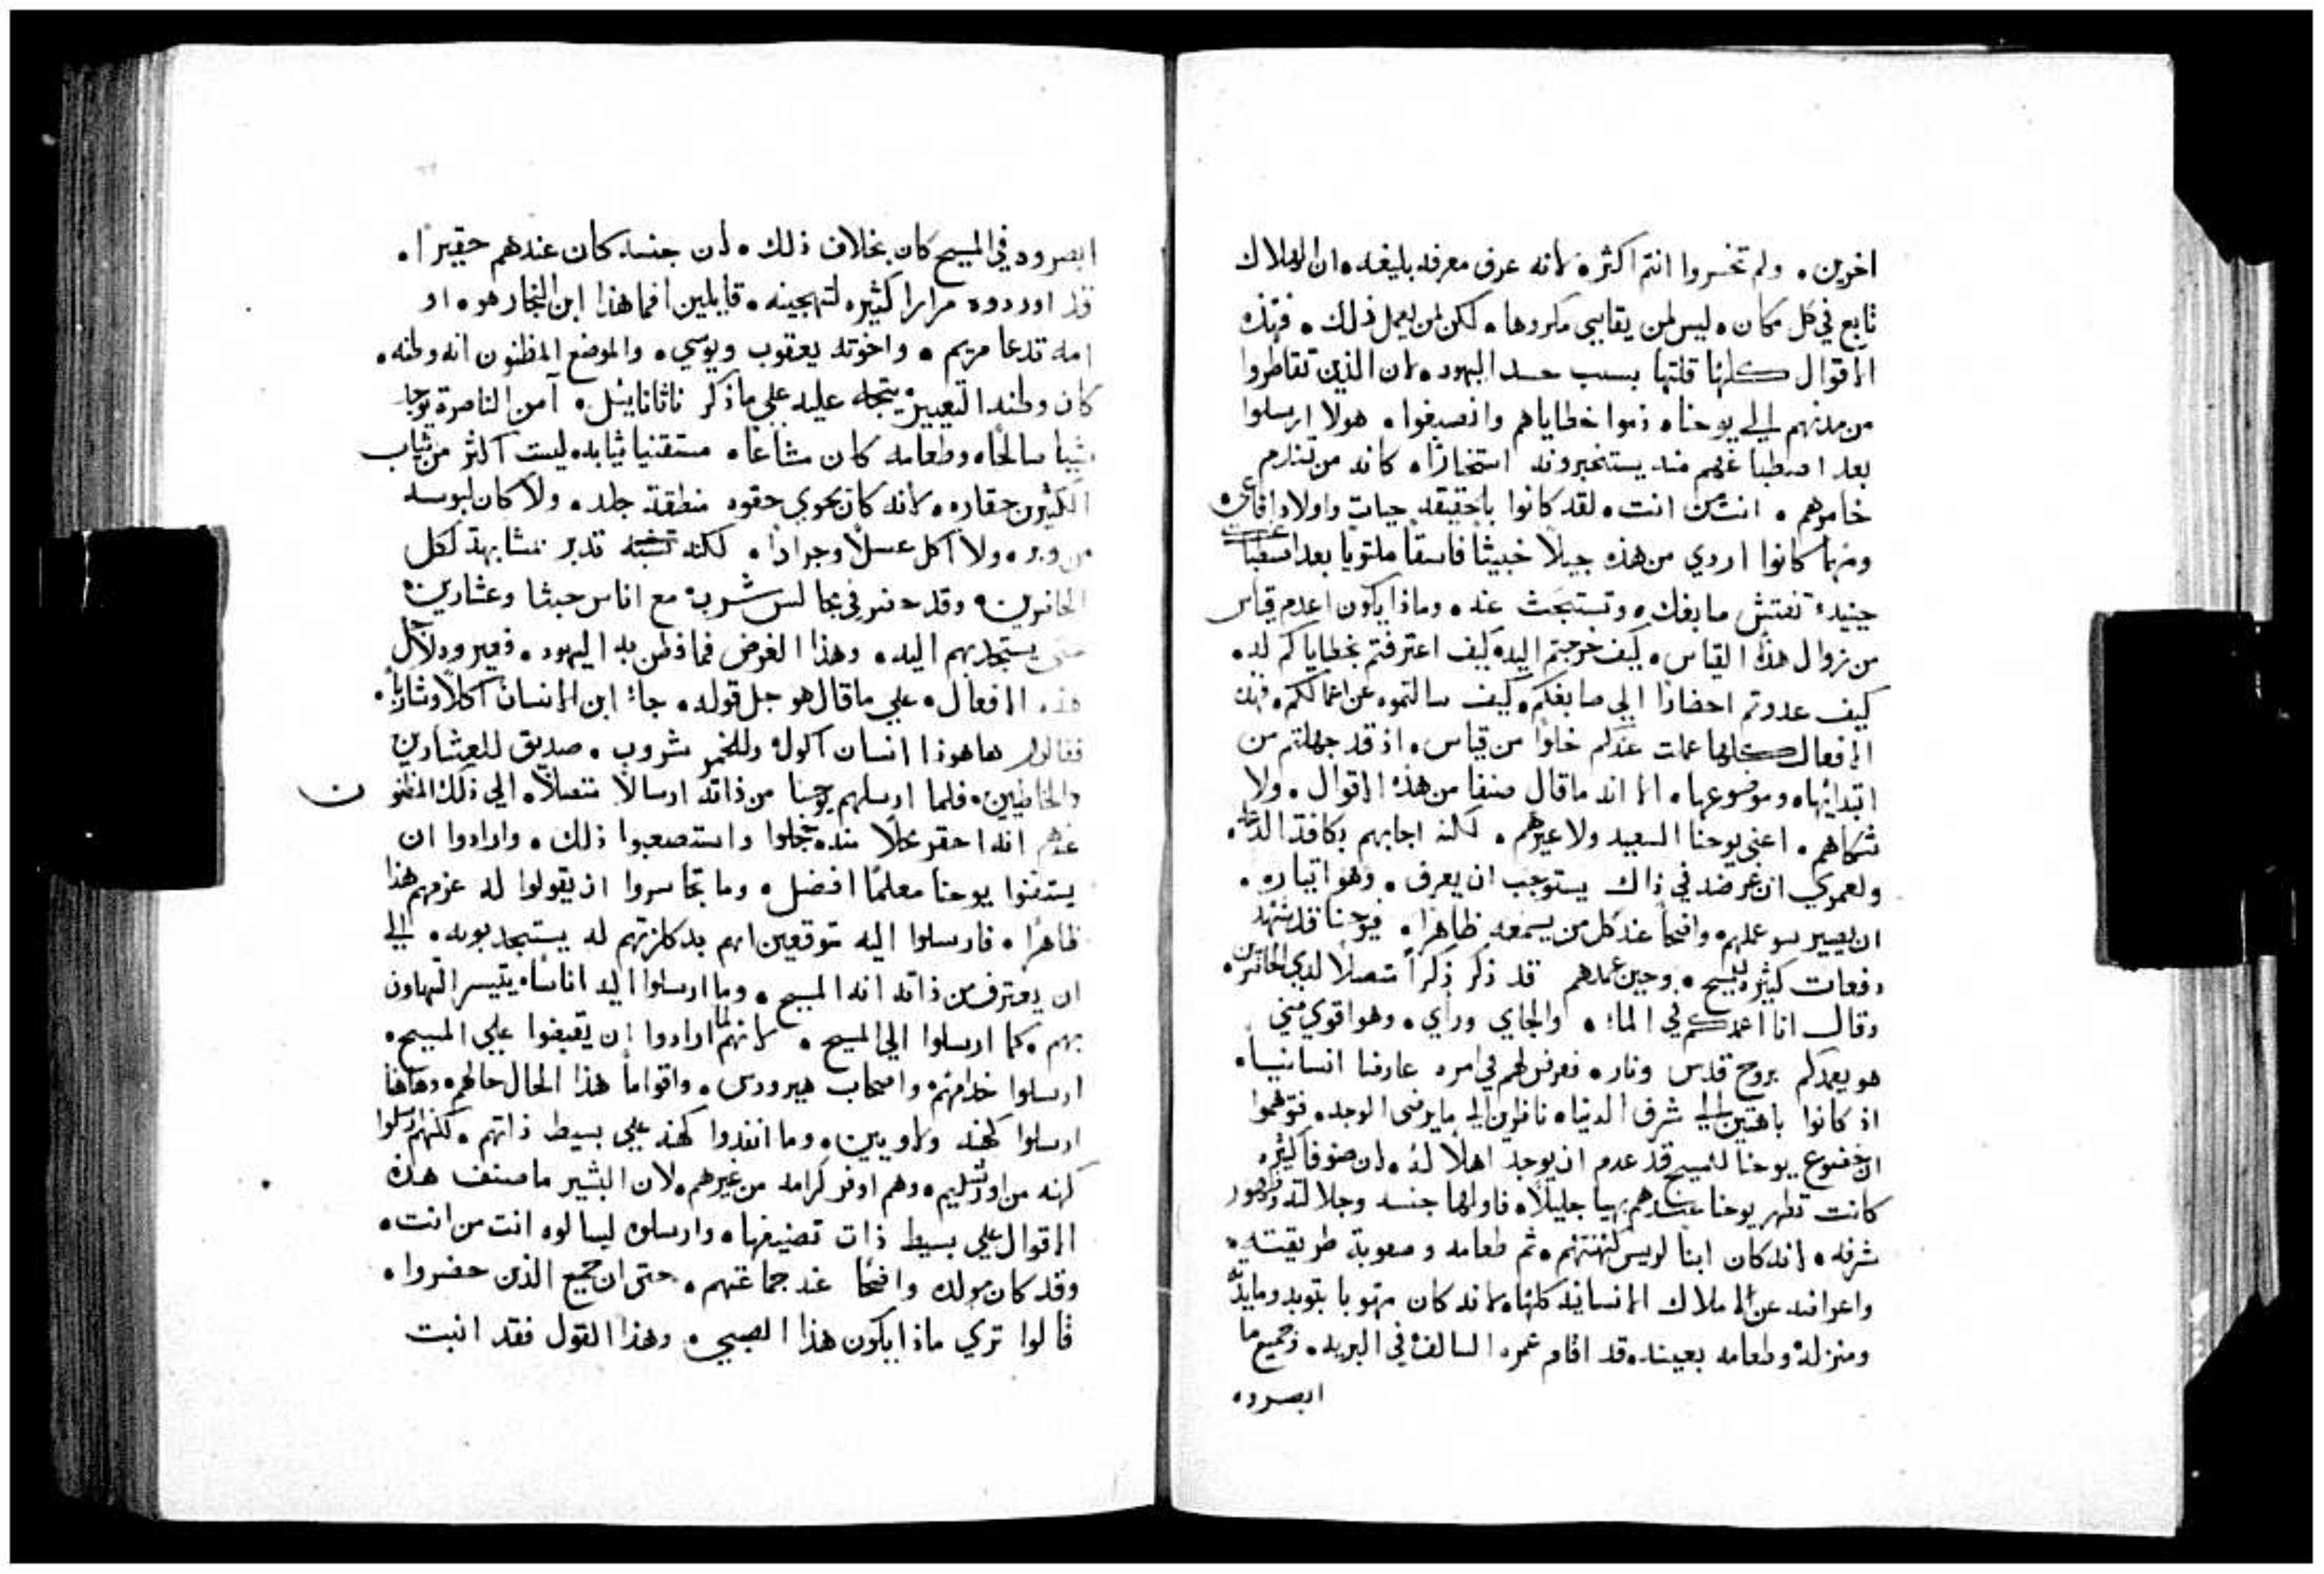 اخرين. ولم تخسروا انتم اكثره لانه عرف معرفه بليغه. ان الهلاك
تابع في كل مكان. ليس لمن يقاسي مكروها. لكن لمن يعمل ذلك. فهذه
الاقوال كلها قلتها بسبب حسد اليهود. لان الذين تقاطروا
من مدنهم الي يوحنا. ذموا خطاياهم وانصبغوا. هولا ارسلوا
بعد اصطباغهم منه يستخبرونه استخبارًا. كانه من تندم
خامرهم. انت من انت. لقد كانوا بالحقيقه حيات واولاد افاعي.
ومهما كانوا اردي من هذه جيلاً خبيثًا فاسقًا ملتويًا بعد اصطباغك
حينيد تفتش صابغك. وتستبحث عنه. وماذا يكون اعدم قياس
من زوال هذا القياس. كيف خرجتم اليه. كيف اعترفتم بخطاياكم له.
كيف عدوتم احضارًا الي صابغكم. كيف سالتموه عن اعمالكم. فهذه
الافعال كلها عملت عندكم خلوًا من قياس. اذ قد جهلتم من
ابتدايها وموضوعها. الا انه ما قال صنفا من هذه الاقوال. ولا
شكاهم. اعني يوحنا السعيد ولا عيرهم. لكنه اجابهم بكافة الدعه.
ولعمري ان غرضه في ذاك يستوجب ان يعرف. وهو اتياره.
ان يصير سو عملهم واضحًا عند كل من يسمعه ظاهرًا. فيوحنا قد شهد
دفعات كثيره للمسيح. وحين عمدهم قد ذكر ذكرًا متصلاً لدي الحاضرين.
وقال انا اعمدكم في الماء. والجاي وراي. وهو اقوي مني
هو يعمدكم بروح قدس ونار. فعرض لهم في امره عارضا انسانيا.
اذ كانوا باهتين الي شرف الدنيا. ناظرين الي ما يرضي الوجه. فتوهموا
ان خضوع يوحنا للمسيح قد عدم ان يوجد اهلاً له. لان صنوفا كثيره
كانت تظهر يوحنا عندهم بهيا جليلاً. فاولها جنسه وجلالته وظهور
شرفه. لانه كان ابنا لريس كهنتهم. ثم طعامه وصعوبة طريقته.
واعراضه عن الاملاك الانسانيه كلها. لانه كان متهوبا بثوبه ومايدته
ومنزله وطعامه بعينه. قد اقام عمره السالف في البريه. وجميع ما
ابصروه
ابصروه في المسيح كان بخلاف ذلك. لان جنسه كان عندهم حقيرًا.
قد اوردوه مرارا كثيره لتهجينه. قايلين افما هذا ابن النجار هو. او
امه تدعا مريم. واخوته يعقوب ويوسي. والموضع المظنون انه وطنه.
كان وطنه التعيير يتجه عليه علي ما ذكر ناثانائيل. آمن الناصرة يوجد
شيا صالحًا. وطعامه كان مشاعًا. مستقنيا ثيابه ليست اكثر من ثياب
الكثيرون حقاره. لانه كان يحوي حقوه منطقة جلد. ولا كان لبوسه
من وبر. ولا اكل عسلاً وجرادًا. لكنه تدبر مشابهة لكل
الحاضرين. وقد حضر في مجالس شرب مع اناس خبثا وعشارين
حتي يستجذبهم اليه. وهذا الغرض فما فطن به اليهود. فعيروه لاجل
هذه الافعال. علي ما قال هو جل قوله. جاء ابن الانسان آكلاً وشاربًا.
فقالوا ها هوذا انسان اكول وللخمر شروب. صديق للعشارين
والخاطيين. فلما ارسلهم يوحنا من ذاته ارسالاً متصلاً. الي ذلك المظنون
عندهم انه احقر محلاً منه. خجلوا واستصعبوا ذلك. وارادوا ان
يستقنوا يوحنا معلمًا افضل. وما تجاسروا ان يقولوا له عزمهم هذا
ظاهرًا. فارسلوا اليه متوقعين انهم بدكازتهم له يستجذبونه. الي
ان يعترف من ذاته انه المسيح. وما ارسلوا اليه اناسًا يتيسر التهاون
بهم. كما ارسلوا الي المسيح. لانهم لما ارادوا ان يقبضوا علي المسيح.
ارسلوا خدامهم واصحاب هيرودس. واقوامًا هذا الحال حالهم. وهاهنا
ارسلوا كهنه ولاويين. وما انفدوا كهنه علي بسيط ذاتهم. لكنهم ارسلوا
كهنه من اورشليم. وهم اوفر كرامه من غيرهم. لان البشير ما صنف هذه
الاقوال علي بسيط ذات تصنيفها. وارسلوه ليسالوه انت من انت.
وقد كان مولده واضحًا عند جماعتهم. حتي ان جميع الذين حضروا.
قالوا تري ماذا يكون هذا الصبي. وهذا القول فقد اثبت